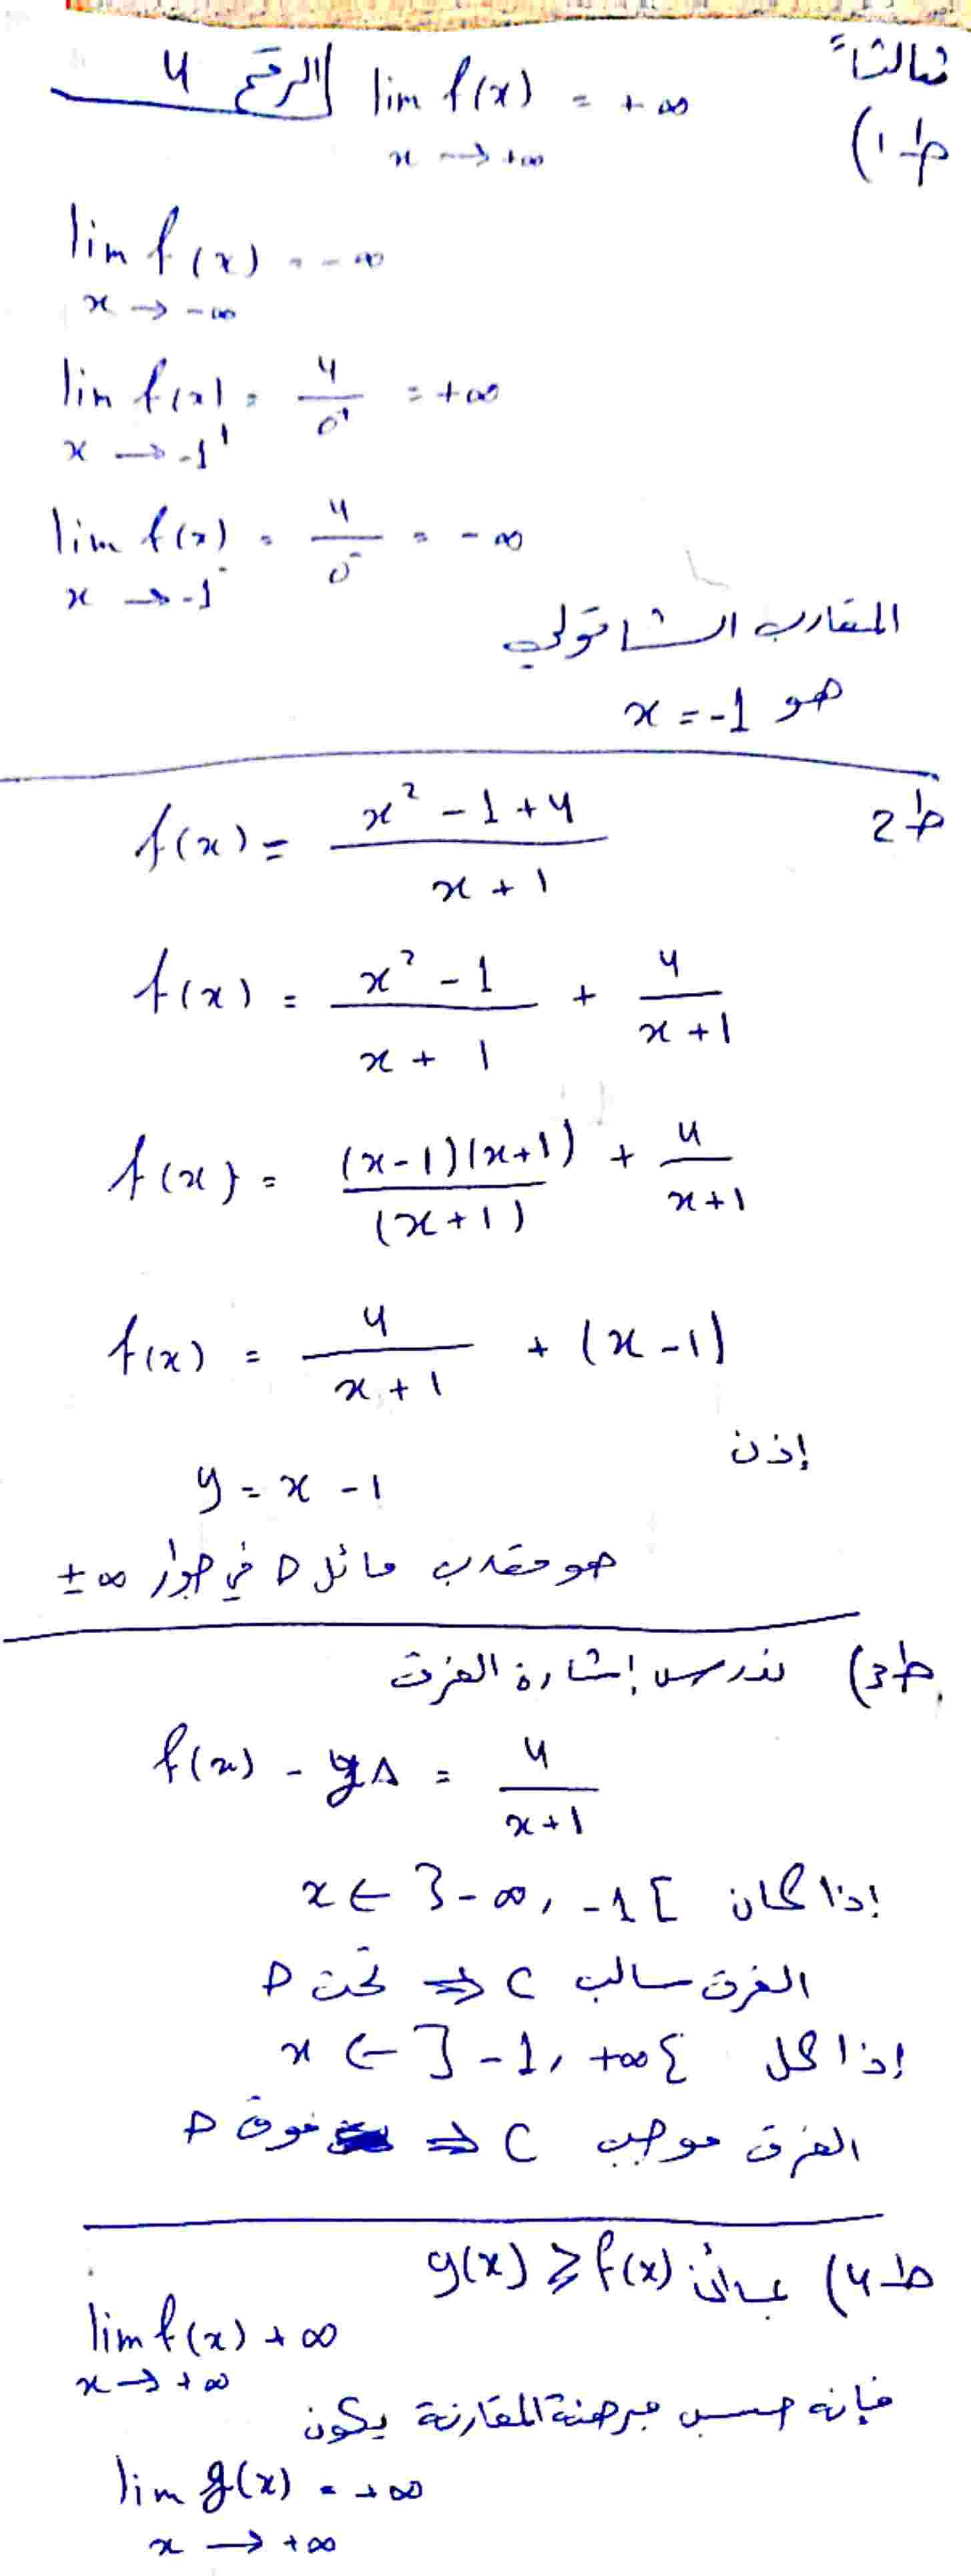 ثالثاً
ط1) lim f(x) = +∞ الرقم 4
x → +∞
lim f(x) = -∞
x → -∞
lim f(x) = 4/0⁺ = +∞
x → -1⁺
lim f(x) = 4/0⁻ = -∞
x → -1⁻
المقارب الشاقولي
هو x = -1
ط2 f(x) = (x² - 1 + 4)/(x + 1)
f(x) = (x² - 1)/(x + 1) + 4/(x + 1)
f(x) = (x-1)(x+1)/(x+1) + 4/(x+1)
f(x) = 4/(x+1) + (x-1)
إذن
y = x - 1
هو مقارب مائل D في جوار ±∞
ط3) ندرس إشارة الفرق
f(x) - y∆ = 4/(x+1)
إذا كان x ∈ ]-∞, -1[
الفرق سالب ⇒ C تحت D
إذا كل x ∈ ]-1, +∞[
الفرق موجب ⇒ C فوق D
ط4) بما أن g(x) ≥ f(x)
lim f(x) + ∞
x → +∞
فإنه حسب مبرهنة المقارنة يكون
lim g(x) = +∞
x → +∞